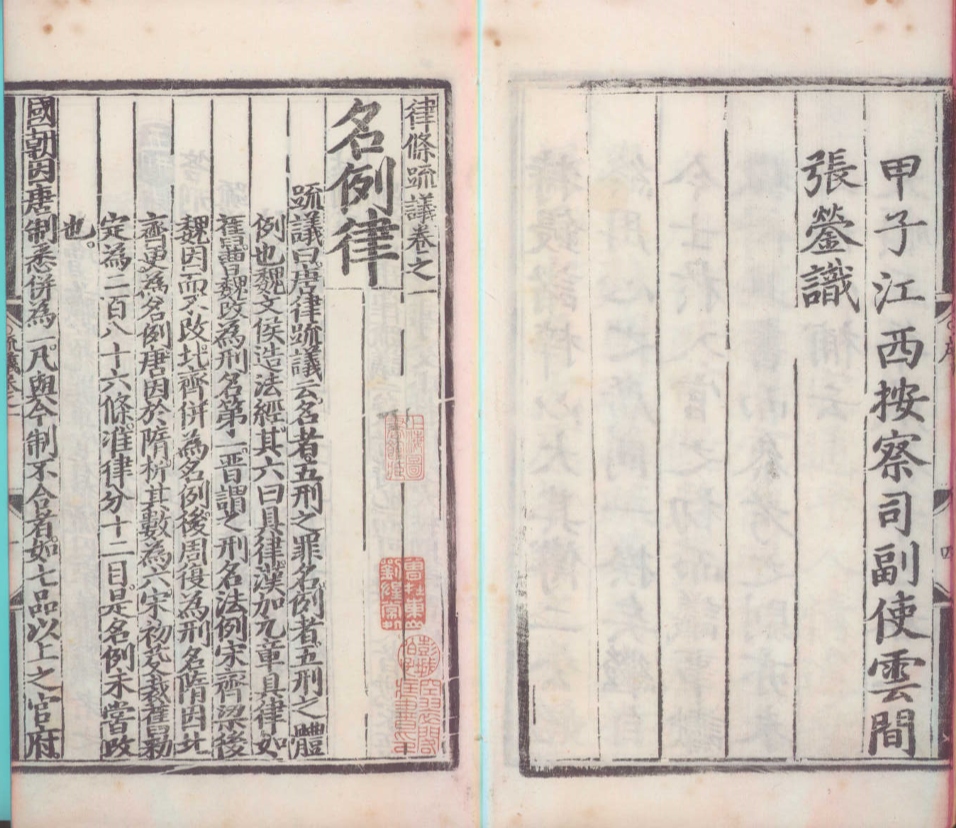 甲子江西按察司副使雲間
張鎣識
律條疏議卷之一
名例律
疏議曰唐律疏議云名者五刑之罪名例者五刑之體
例也魏文侯造法經其六曰具律漢加九章具律如
舊曹魏改為刑名第一晋謂之刑名法例宋齊梁後
魏因而不改北齊併為名例後周復為刑名隋因北
齊更為名例唐因於隋析其數為六宋初芟裁舊勑
定為二百八十六條准律分十二目是名例未嘗改
也
國朝因唐制悉併為一凡與今制不合者如七品以上之官府